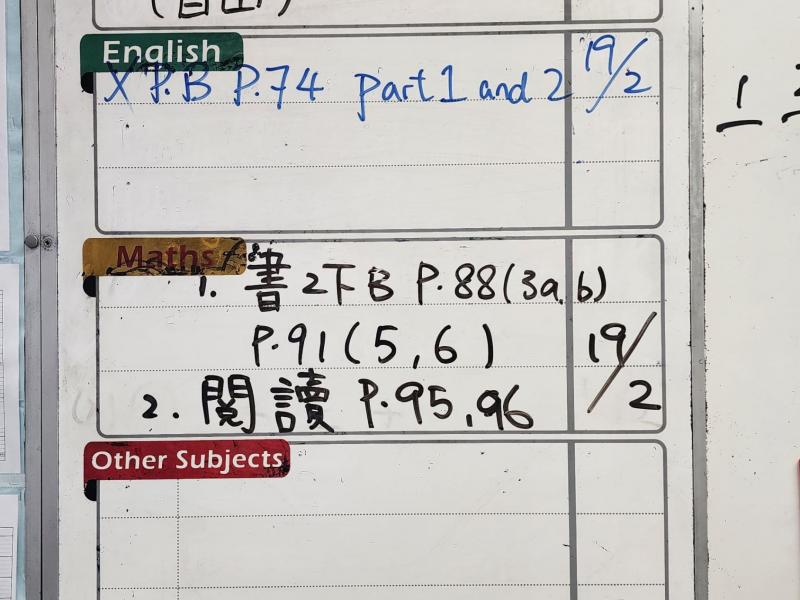 (自出)
English
X P.B P.74 part 1 and 2 19/2
Maths
1. 書 2下B P.88(3a,b)
P.91(5,6) 19/2
2. 閱讀 P.95,96
Other Subjects
1